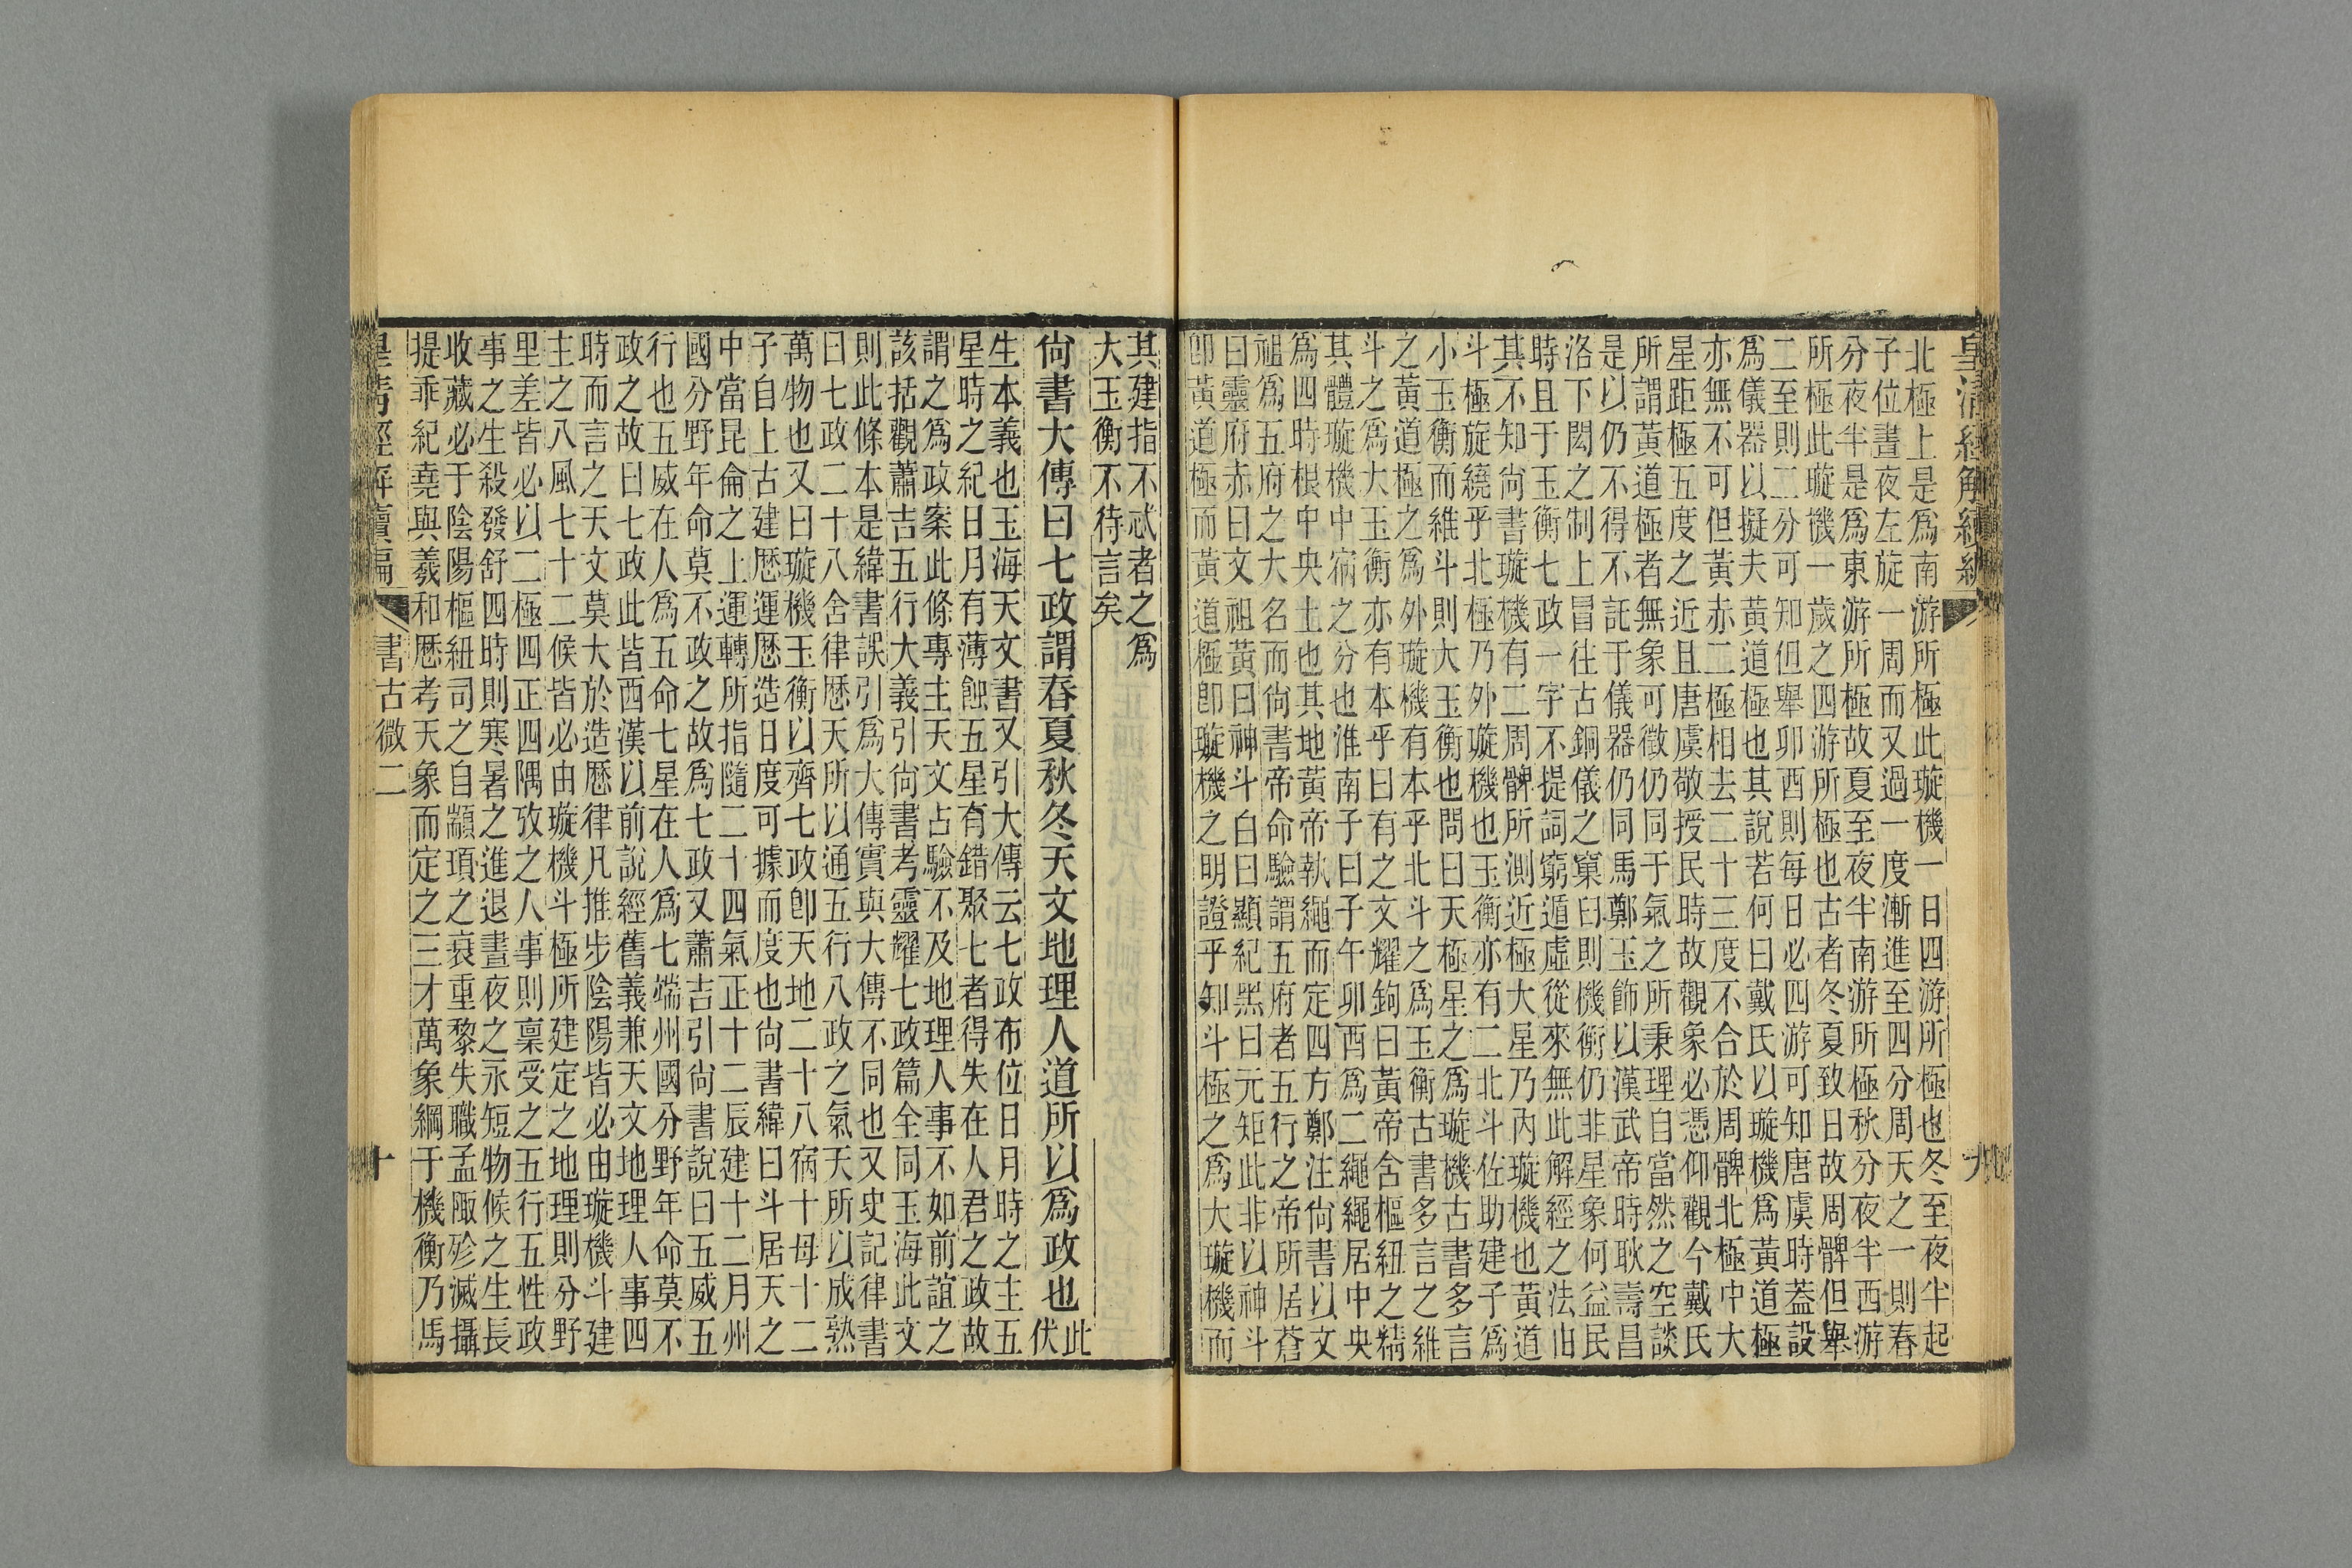 皇清經解續編 九
北極上是爲南游所極此璇機一日四游所極也冬至夜半起
子位晝夜左旋一周而又過一度漸進至四分周天之一則春
分夜半是爲東游所極故夏至夜半南游所極秋分夜半西游
所極此璇機一歲之四游所極也古者冬夏致日故周髀但舉
二至則二分可知但舉卯酉則每日必四游可知唐虞時蓋設
爲儀器以擬夫黃道極也其說若何曰戴氏以璇機爲黃道極
亦無不可但黃赤二極相去二十三度不合於周髀北極中大
星距極五度之近且唐虞敬授民時故觀象必憑仰觀今戴氏
所謂黃道極者無象可徵仍同于氣之所秉理自當然之空談
是以仍不得不託于儀器仍同馬鄭玉飾以漢武帝時耿壽昌
洛下閎之制上冒往古銅儀之窠臼則機衡仍非星象何益民
時且于玉衡七政一字不提詞窮遁虛從來無此解經之法由
其不知尚書璇機有二周髀所測近極大星乃內璇機也黃道
斗極旋繞乎北極乃外璇機也玉衡亦有二北斗佐助建子爲
小玉衡而維斗則大玉衡也問曰天極星之爲璇機古書多言
之黃道極之爲外璇機有本乎北斗之爲玉衡古書多言之維
斗之爲大玉衡亦有本乎曰有之文耀鉤曰黃帝含樞紐之精
其體璇機中宿之分也淮南子曰子午卯酉爲二繩繩居中央
爲四時根中央土也其地黃帝執繩而定四方鄭注尚書以文
祖爲五府之大名而尚書帝命驗謂五府者五行之帝所居蒼
曰靈府赤曰文祖黃曰神斗白曰顯紀黑曰元矩此非以神斗
卽黃道極而黃道極卽璇機之明證乎知斗極之爲大璇機而
其建指不忒者之爲
大玉衡不待言矣
尚書大傳曰七政謂春夏秋冬天文地理人道所以爲政也此伏
生本義也玉海天文書又引大傳云七政布位日月時之主五
星時之紀日月有薄蝕五星有錯聚七者得失在人君之政故
謂之爲政案此條專主天文占驗不及地理人事不如前誼之
該括觀蕭吉五行大義引尚書考靈耀七政篇全同玉海此文
則此條本是緯書誤引爲大傳實與大傳不同也又史記律書
曰七政二十八舍律厯天所以通五行八政之氣天所以成孰
萬物也又曰璇機玉衡以齊七政卽天地二十八宿十母十二
子自上古建厯運厯造日度可據而度也尚書緯曰斗居天之
中當昆侖之上運轉所指隨二十四氣正十二辰建十二月州
國分野年命莫不政之故爲七政又蕭吉引尚書說曰五威五
行也五威在人爲五命七星在人爲七端州國分野年命莫不
政之故曰七政此皆西漢以前說經舊義兼天文地理人事四
時而言之天文莫大於造厯律凡推步陰陽皆必由璇機斗建
主之八風七十二候皆必由璇機斗極所建定之地理則分野
里差皆必以二極四正四隅攷之人事則稟受之五行五性政
事之生殺發舒四時則寒暑之進退晝夜之永短物候之生長
收藏必于陰陽樞紐司之自顓頊之衰重黎失職孟陬殄滅攝
提乖紀堯與羲和厯考天象而定之三才萬象綱于機衡乃馬
皇清經解續編 書古微二 十